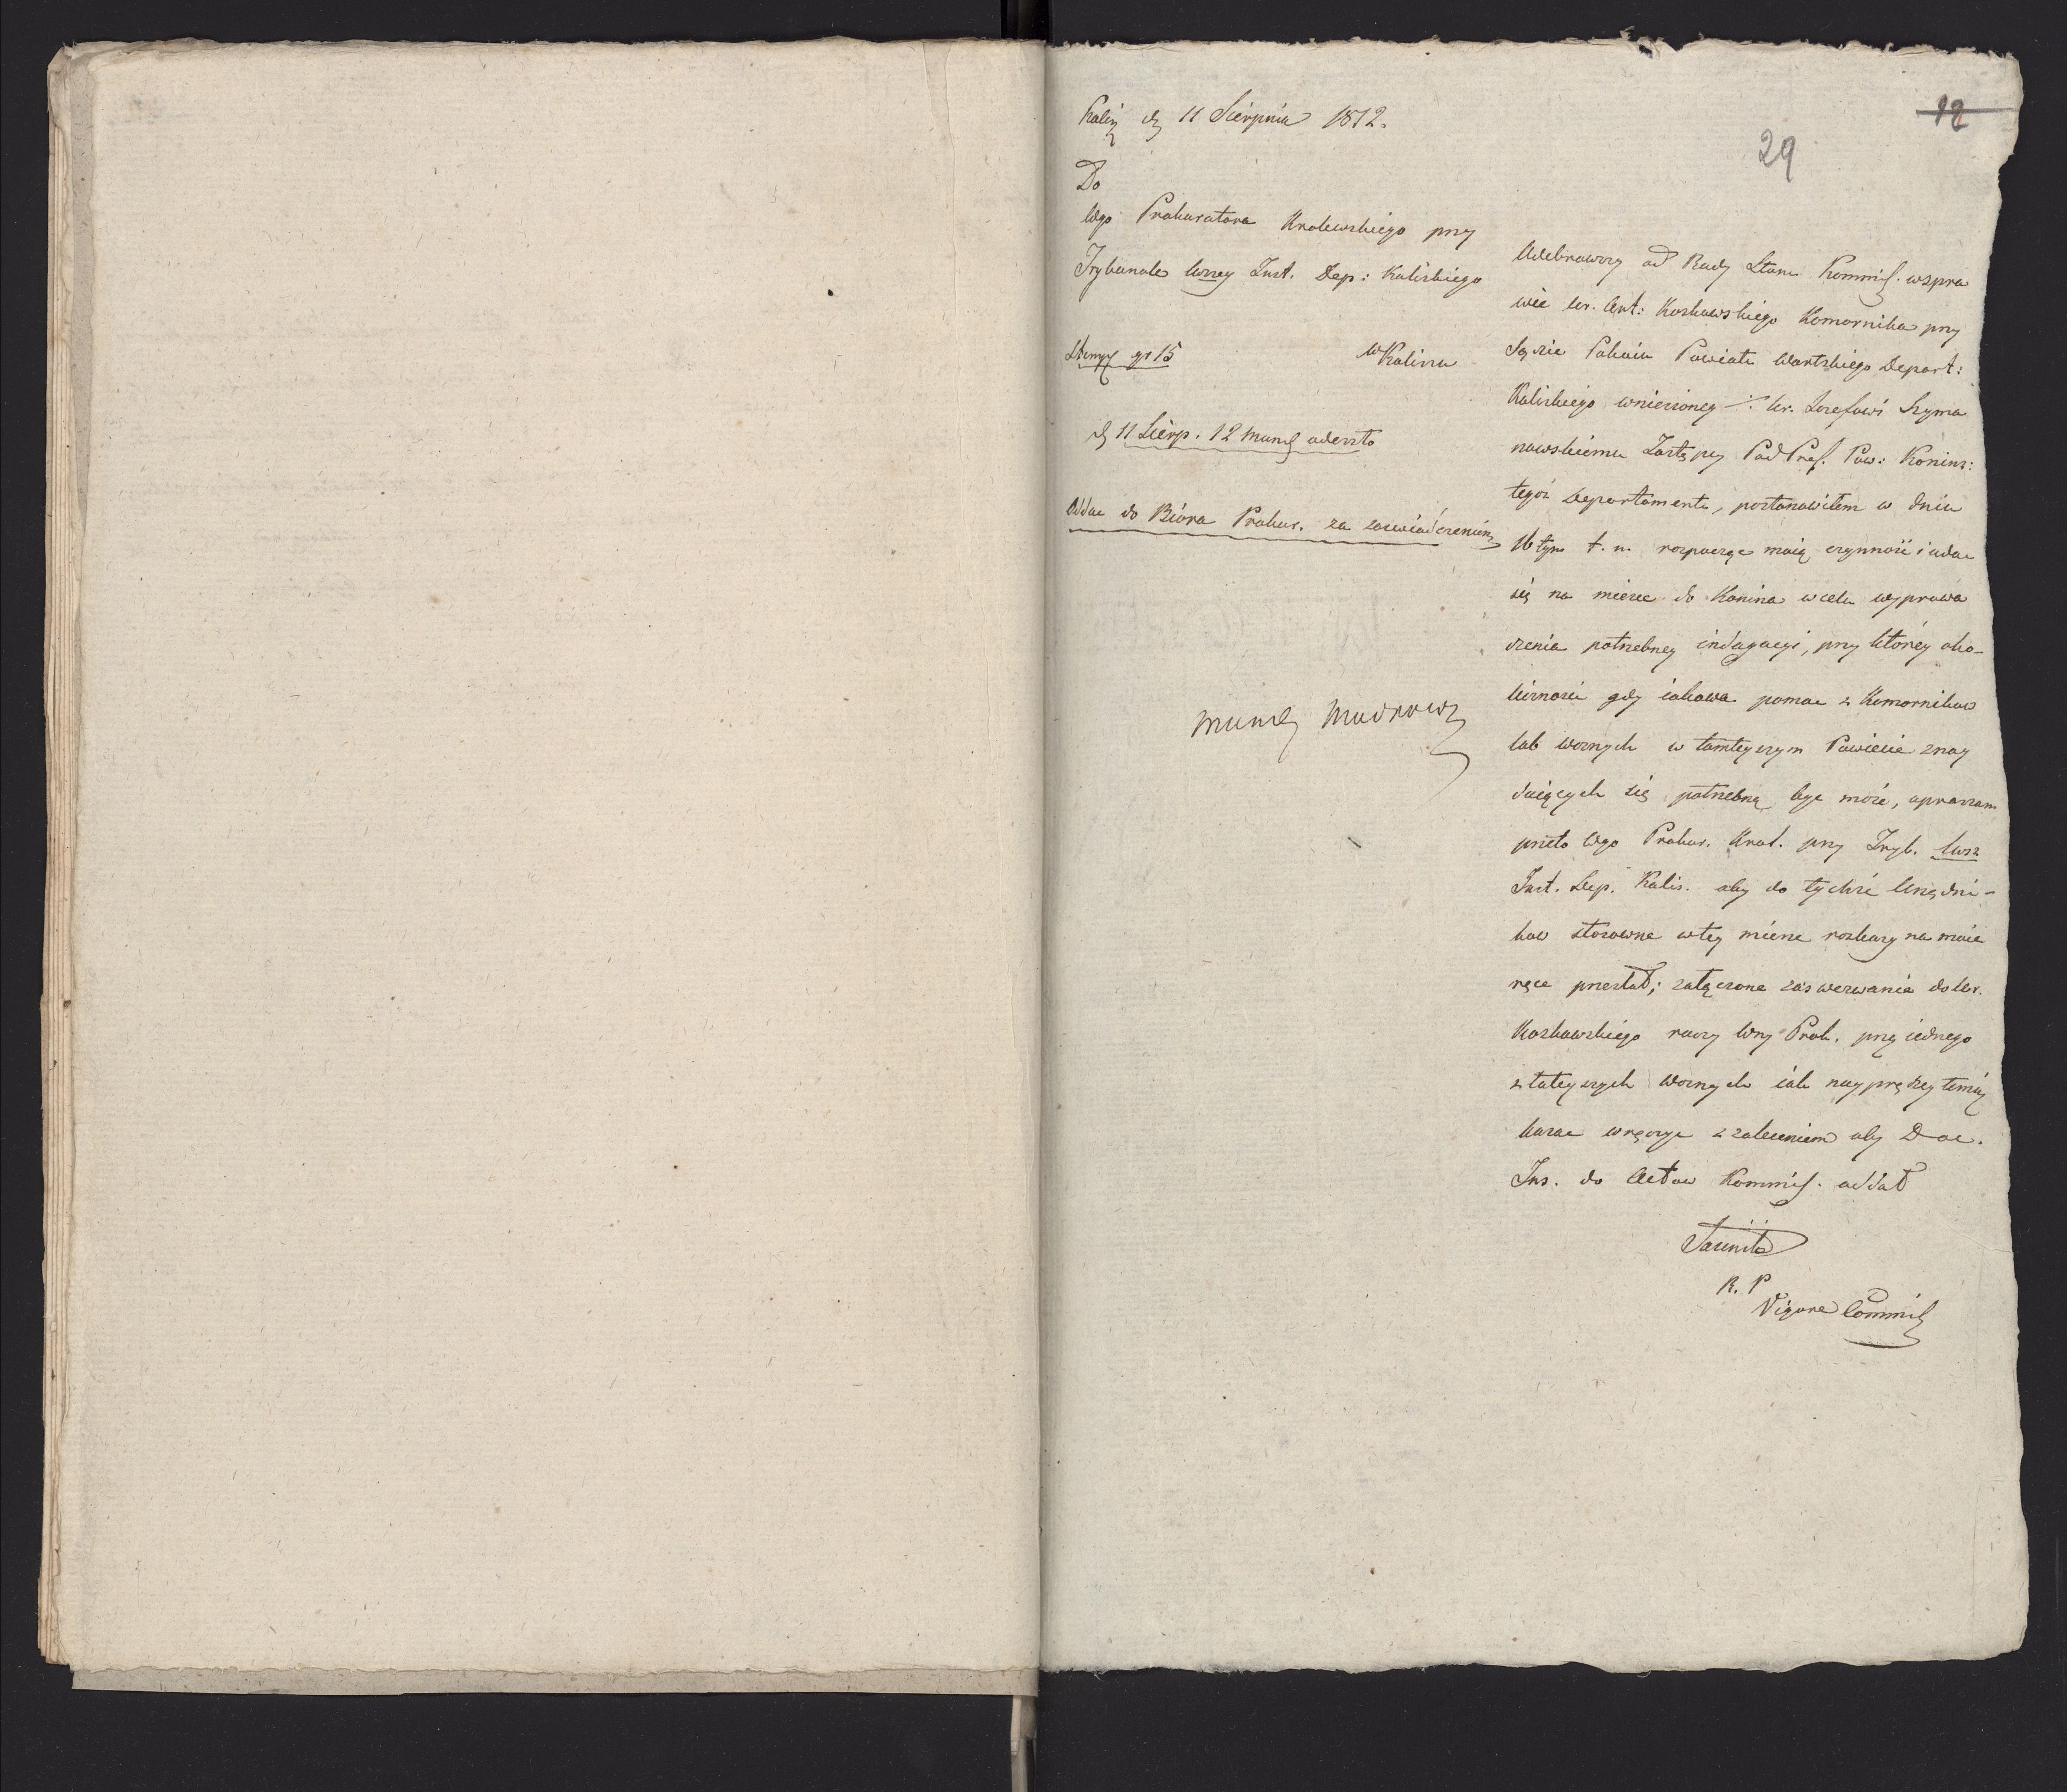 12
29
Kalisz dn 11 Sierpnia 1812.
Do
Wgo Prokuratora Krolewskiego przy
Trybunale Iwszey Inst. Dep: Kaliskiego
Stempl gr 15 w Kaliszu
dn 11 Sierp. 12 mund odeszło
Oddac do Biora Prokur. za zaswiadczeniem
Odebrawszy od Rady Stanu Kommis. w spra
wie Ur. Ant: Koskowskiego Komornika przy
Sądzie Pokoiu Powiatu Wartskiego Depart:
Kaliskiego wniesioney -/. Ur. Jozefowi Szyma
nowskiemu Zastępcy PodPref. Pow: Konins:
tegoż Departamentu, postanowiłem w dniu
16 tym t. m. rozpocząc moią czynność i udac
się na miesce do Konina w celu wyprowa
dzenia potrzebney indagacyi, przy ktorey oko-
liczności gdy iakowa pomoc z Komornikow
lub woznych w tamteyszym Powiecie znay
duiących się potrzebną byc może, upraszam
przeto Wgo Prokur. Krol. przy Tryb. Iwsz
Inst. Dep. Kalis. aby do tychże Urzędni-
kow stosowne w tey mierze roskazy na moie
ręce przesłał; załączone zaś wezwanie do Ur.
Koskowskiego raczy Wny Prok. przez iednego
z tuteyszych woznych iak nayprędzey temuż
kazac wręczyc z zaleceniem aby Doc.
Ins. do Actow Kommis. oddał
R. P
Vigore Commis